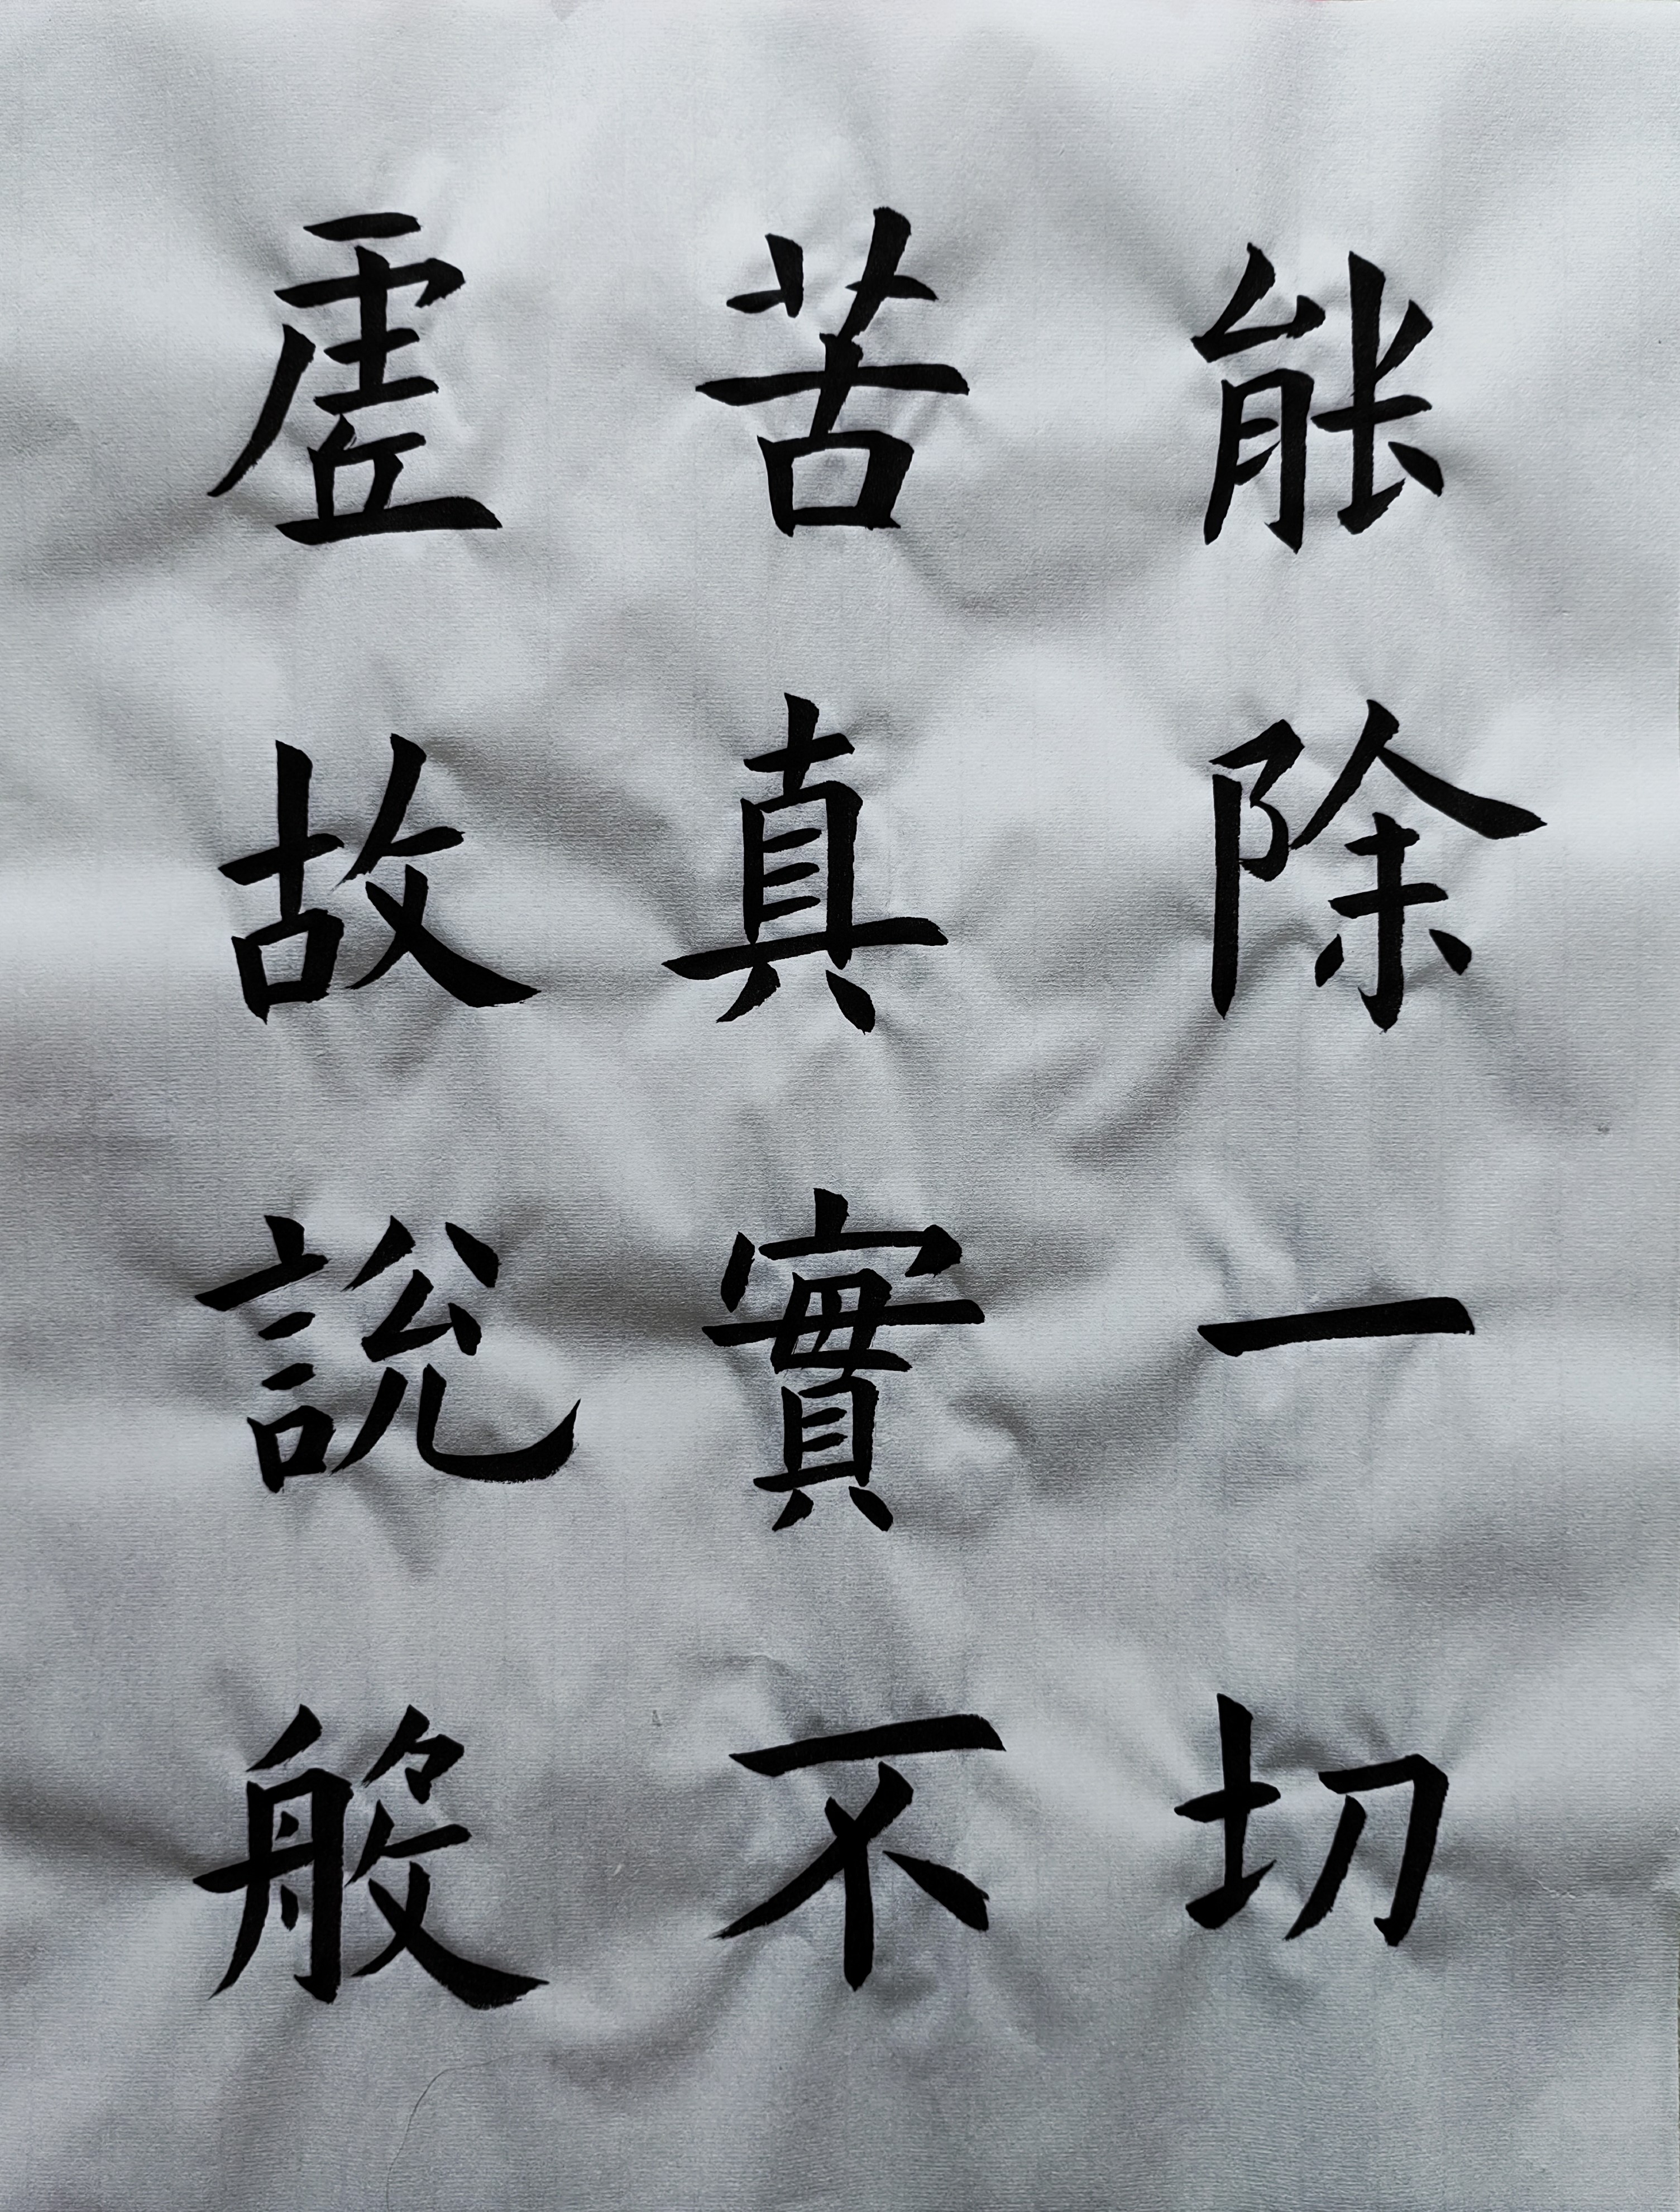 能除一切
苦真實不
虛故說般